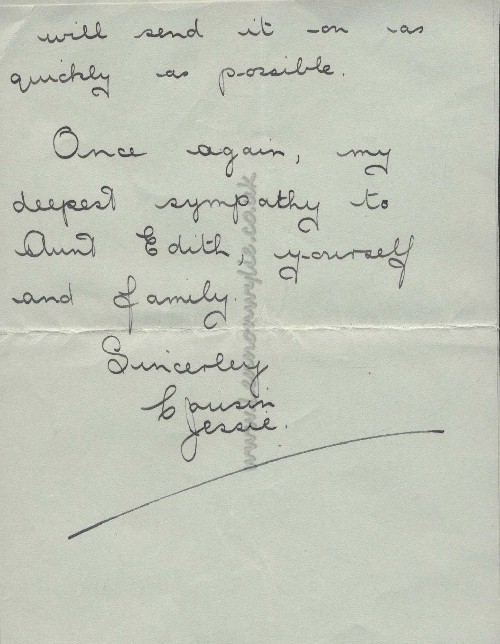 will send it on as
quickly as possible.
Once again, my
deepest sympathy to
Aunt Edith, yourself
and family.
Sincerley
Cousin
Jessie.